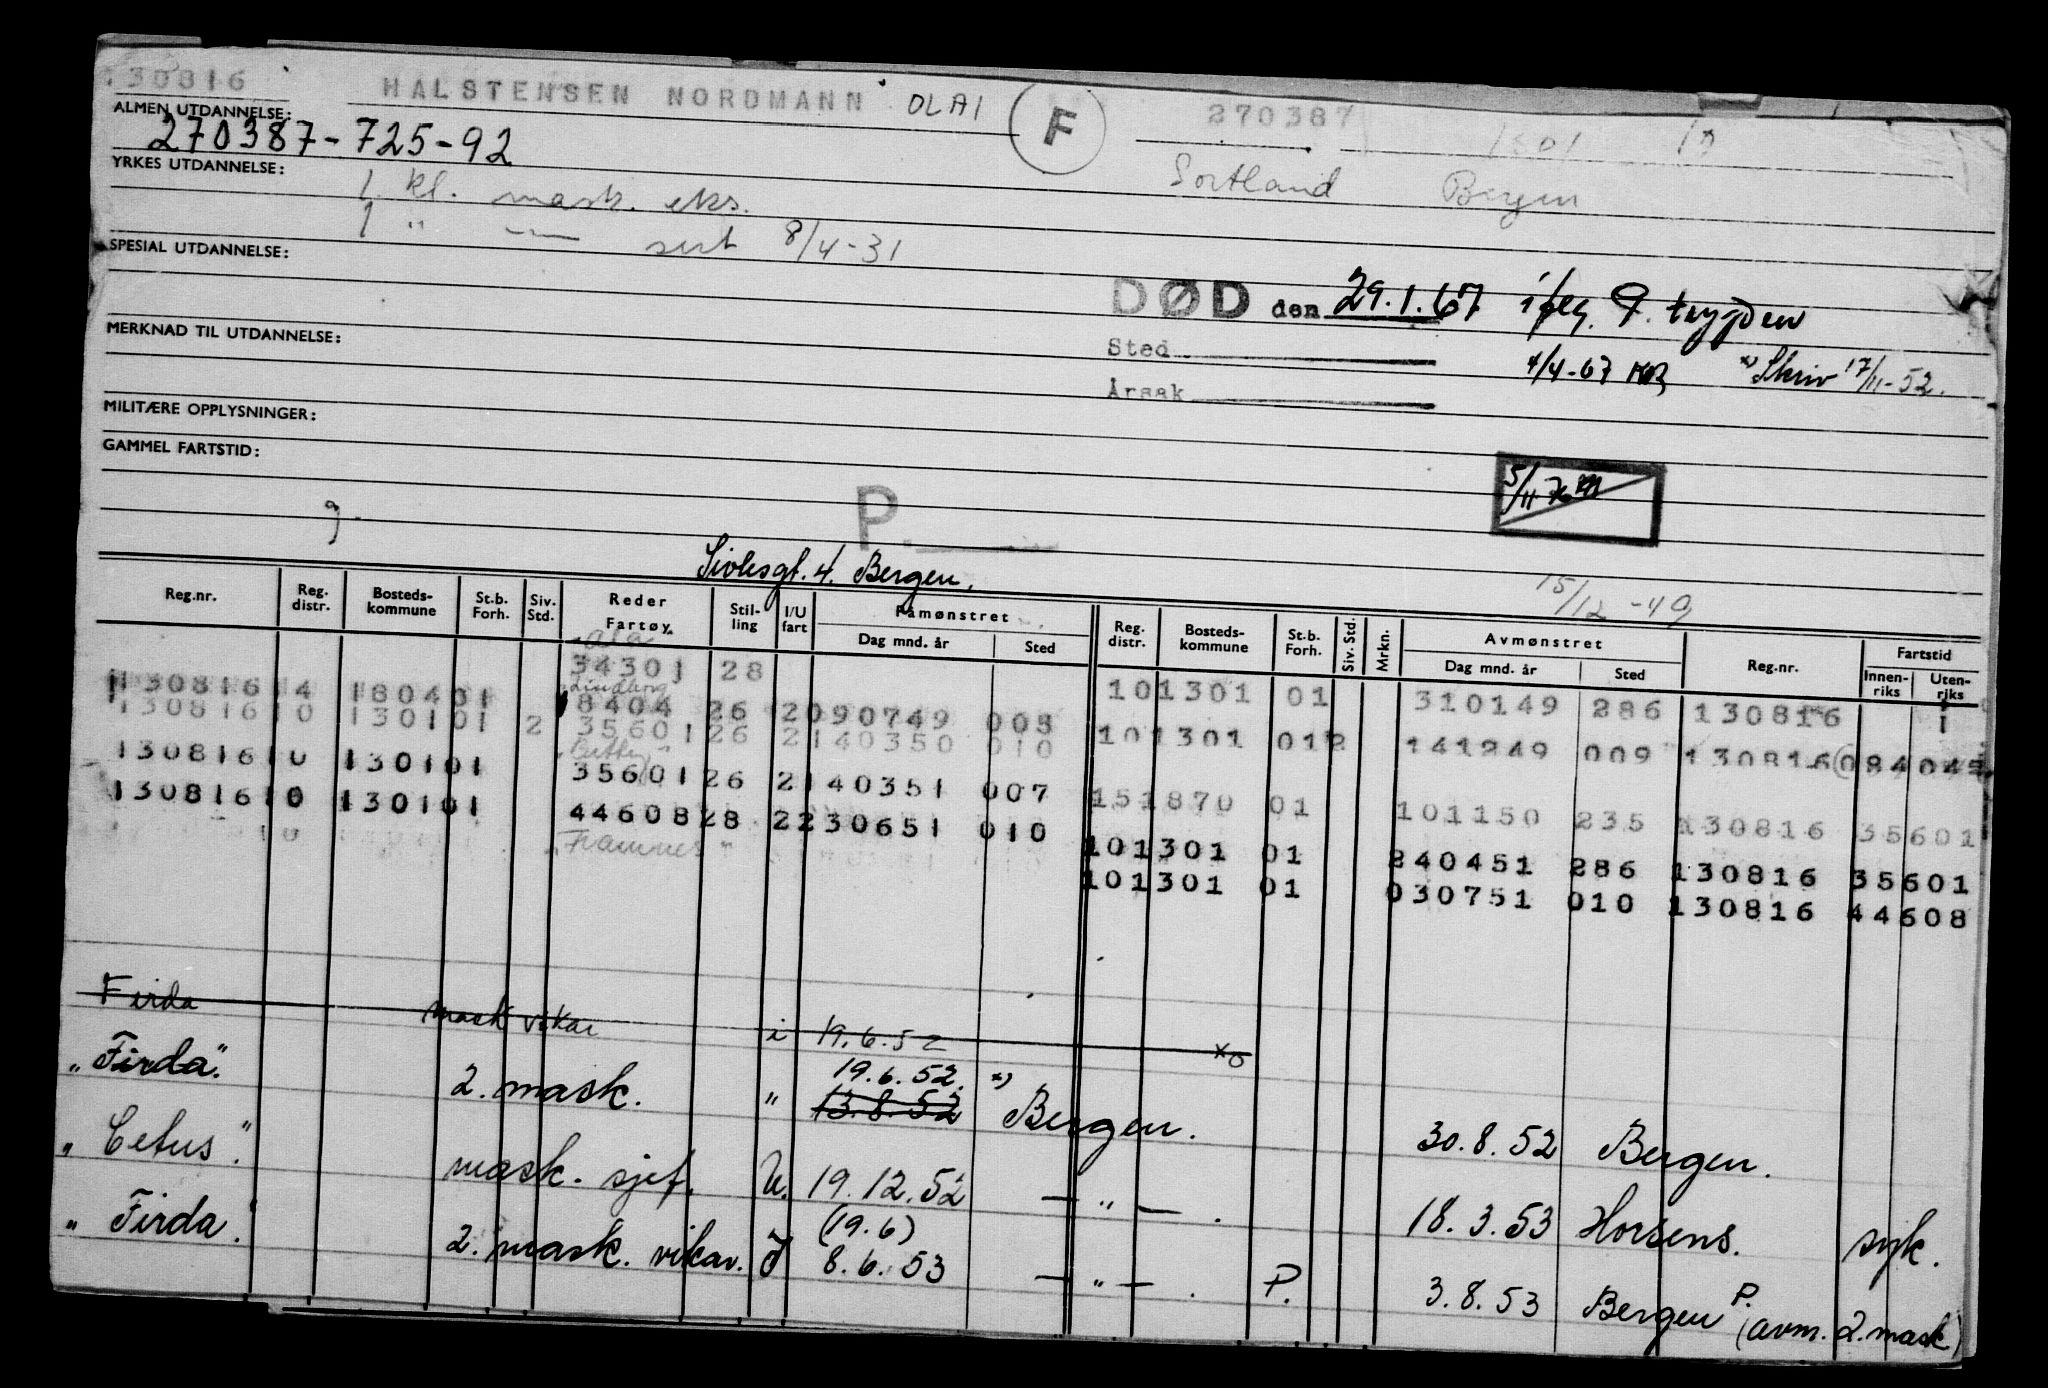 130816 HALSTENSEN NORDMANN OLAI F 270387 1301 10
ALMEN UTDANNELSE:
270387-725-92 Sortland Bergen
YRKES UTDANNELSE:
1. kl. mask. eks.
1 " — sert 8/4-31
SPESIAL UTDANNELSE:
DØD den 29.1.67 iflg. P. trygden
MERKNAD TIL UTDANNELSE:
Sted 4/4-67 x) Skriv 17/11-52.
Årsak
MILITÆRE OPPLYSNINGER:
GAMMEL FARTSTID:
5/11 76
P.
g.
Sivlesgt. 4. Bergen. 15/12-49
Reg.nr. Reg. distr. Bosteds-kommune St.b. Forh. Siv. Std. Reder Fartøy Stil-ling I/U fart Påmønstret Dag mnd. år Sted Reg. distr. Bosteds-kommune St.b. Forh. Siv. Std. Mrkn. Avmønstret Dag mnd. år Sted Reg.nr. Fartstid Innen-riks Uten-riks
34301 28 101301 01 310149 286 130816 1
130816 14 180401 Lindborg 8404 26 2 090749 005 101301 01 2 141249 009 130816 084045
130816 10 130101 2 35601 26 2 140350 010 151870 01 101150 235 130816 35601
130816 10 130101 35601 26 2 140351 007 101301 01 240451 286 130816 35601
130816 10 130101 44608 28 2 230651 010 101301 01 030751 010 130816 44608
Firda mask vikar i 19.6.52 x
19.6.52. x)
"Firda". 2. mask. " 13.8.52 Bergen. 30.8.52 Bergen.
"Cetus". mask. sjef. U. 19.12.52 — " — . 18.3.53 Horsens. syk.
(19.6)
"Firda". 2. mask. vikar. I 8.6.53 — " — . P. 3.8.53 Bergen P. (avm. 2. mask)